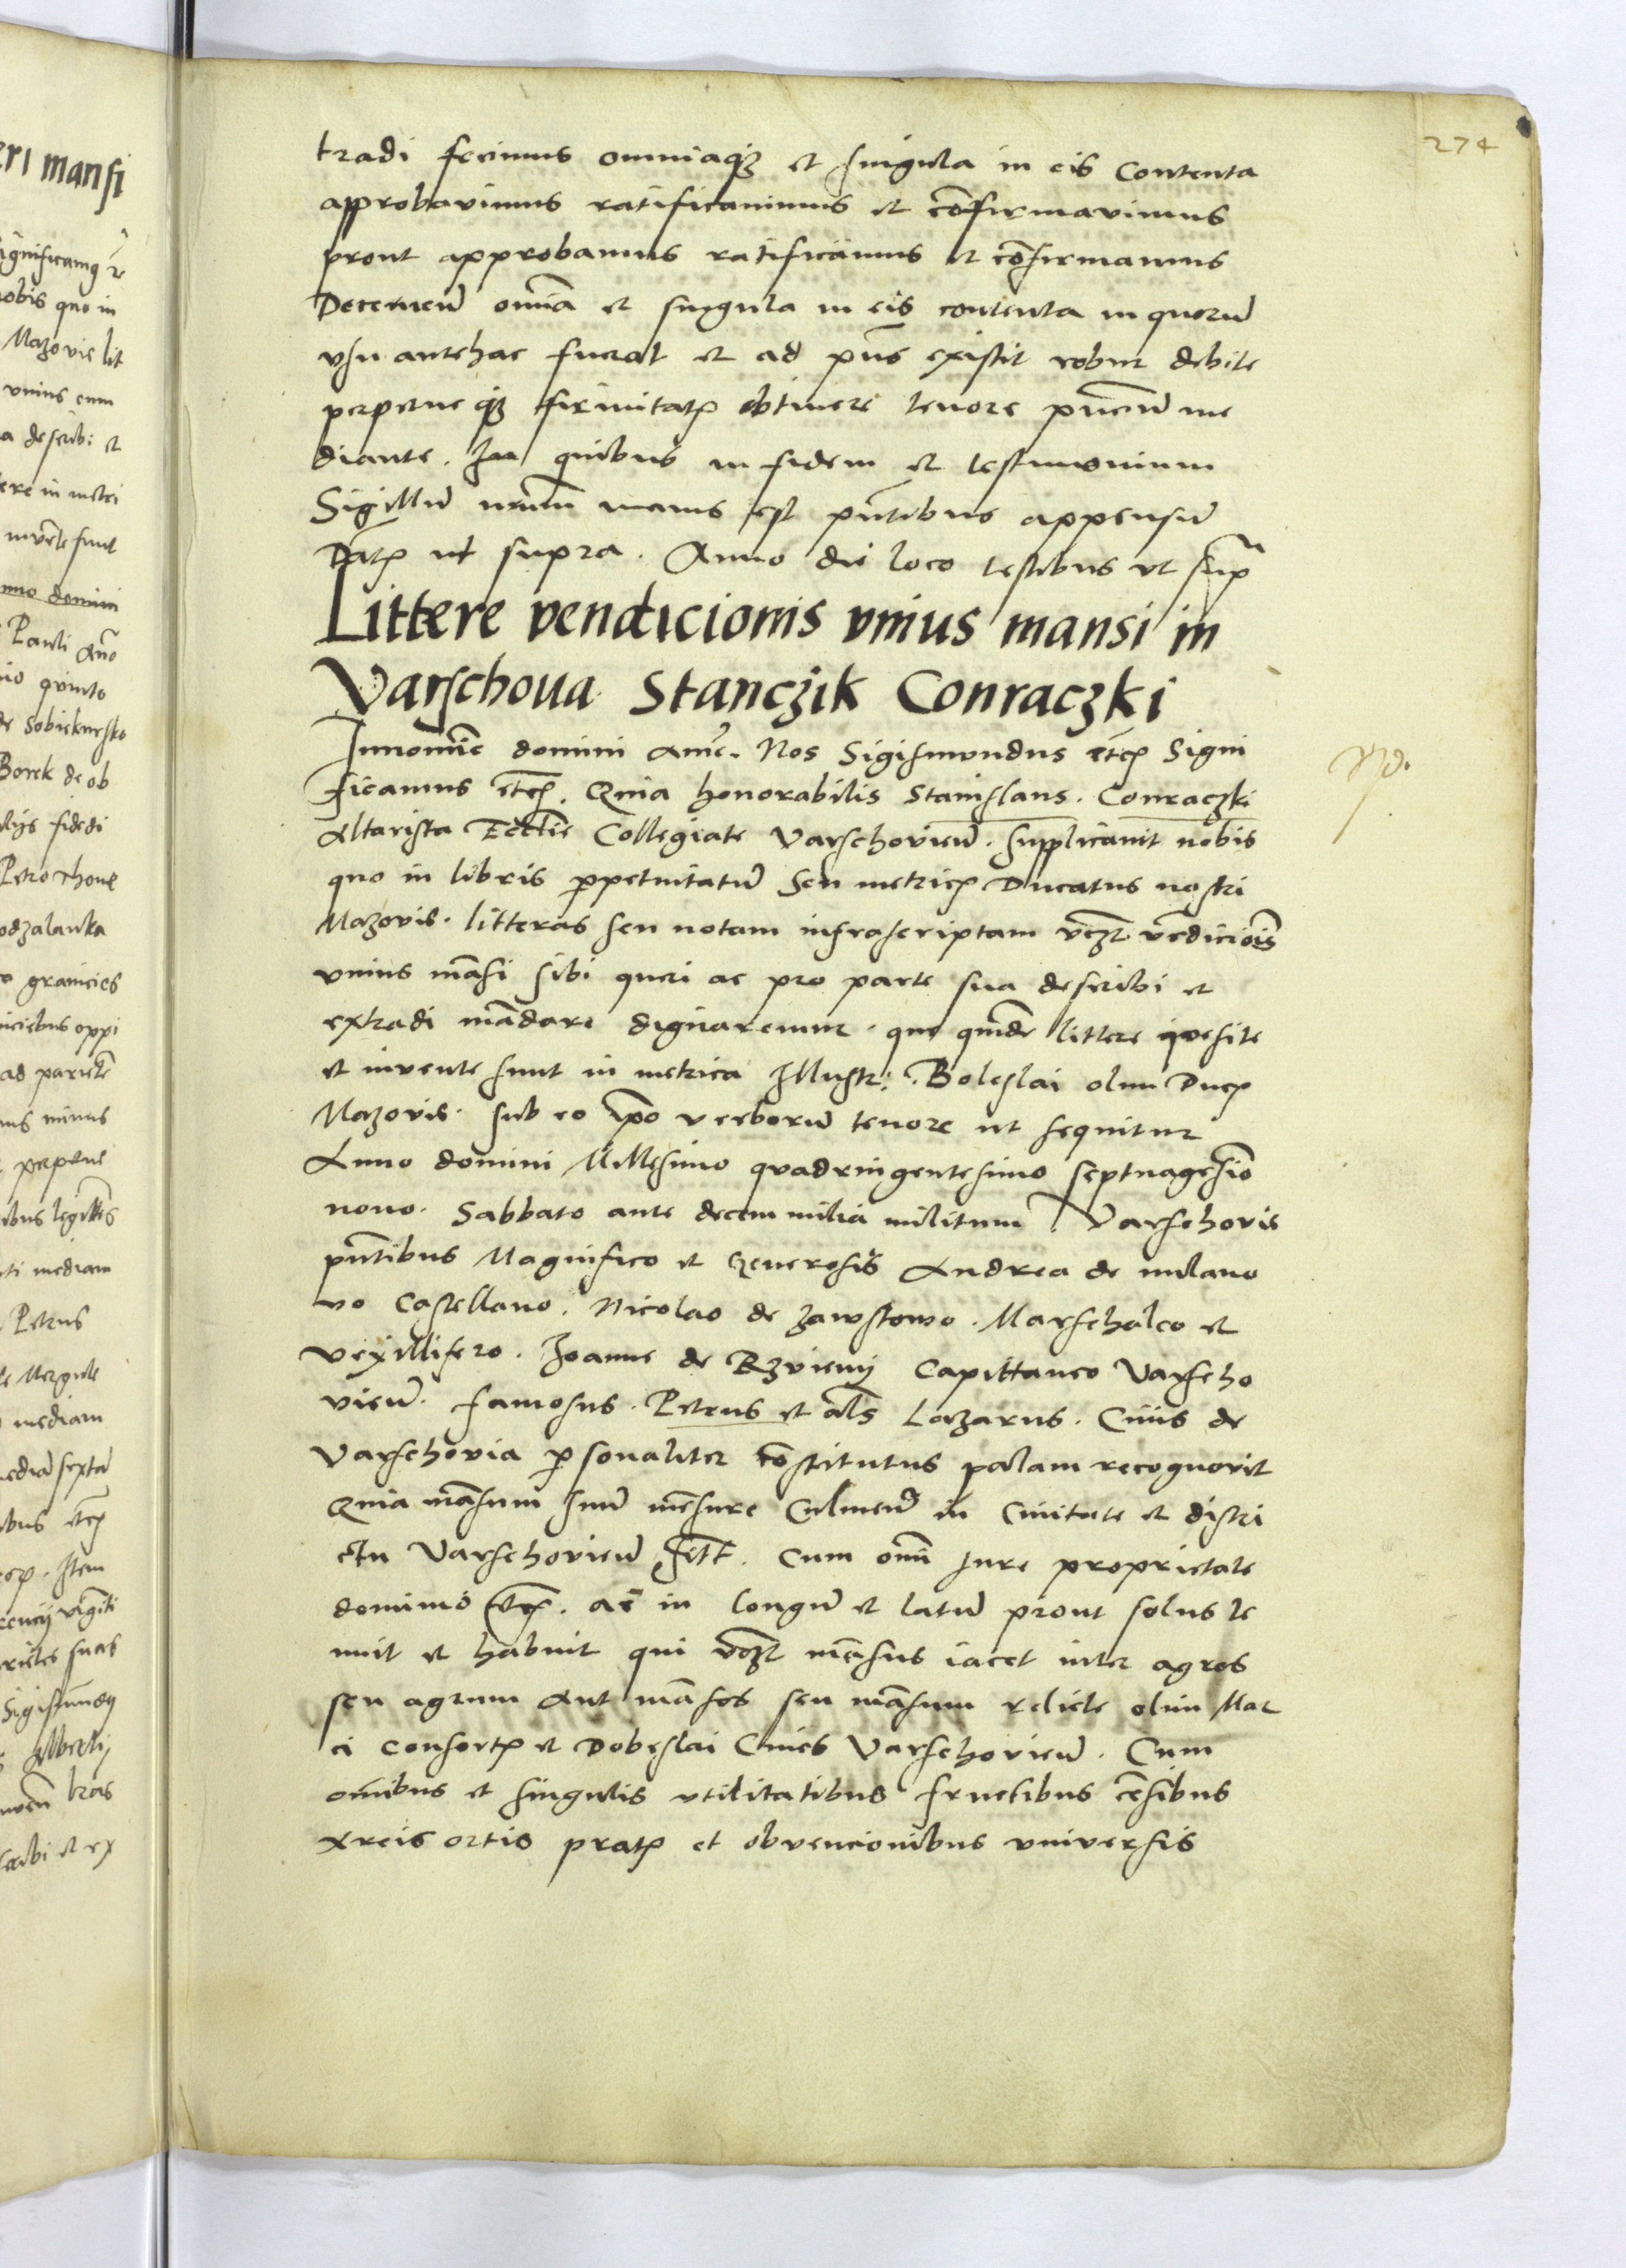 274
tradi fecimus omniaqz et singula in eis Contenta
approbavimus ratificavimus et cōfirmavimus
prout approbamus ratificamus et cōfirmamus
Decerneñ omīa et singula in eis contenta in quorū
vsu antehac fuerat et ad pñs existit robur debite
perpetue qz firmitatꝭ obtinere tenore pñciū me
diante. In quibus in fidem et testimonium
Sigillū nrūm maius est pñtibus appensū
Datꝭ ut supra. Anno die loco testibus vt supᷓ
Littere vendicionis vnius mansi in
Varschoua Stanczik Conraczki
Innomīe domini Amē. Nos Sigismondus etcꝭ Signi
ficamus etcꝭ. Quia honorabilis Stanislaus. Conraczki
Altarista Ecclīe Collegiate Varschovieñ. supplicavit nobis
quo in libris ꝑpetuitatū Seu metricꝭ Ducatus nostri
Mazovie. litteras seu notam infrascriptam vcꝫt vēdicioīs
vnius māsi sibi queri ac pro parte sua describi et
extradi mādare dignaremur. que quidē littere qvesite
et invente sunt in metrica Illustr: Boleslai olim Ducꝭ
Mazovie. sub eo ipō verborū tenore ut sequitur
Anno domini Millesimo quadringentesimo septuagesīo
nono. Sabbato ante decem milia militum Varschovie
pñtibus Magnifico et Generosis Andrea de milano
vo Castellano. Nicolao de Zawstowo. Marschalco et
vexillifero. Joanne de Rzvieny Capittaneo Varscho
vieñ. famosus. Petrus et als Lazarus. Civis de
Varschovia ꝑsonaliter cōstitutus palam recognovit
Quia māsum suū mēsure Culmeñ in Civitate et distri
ctu Varschovieñ sitt. Cum omī Jure proprietate
dominio etcꝭ. ac in longū et latū prout solus te
nuit et habuit qui vcꝫt māsus iacet inter agros
seu agrum Aut māsos seu māsum relicte olim Mar
ci Consortꝭ et Dobeslai Cives Varschovieñ. Cum
omībus et singulis vtilitatibus fructibus cēsibus
Areis ortis pratꝭ et obvencionibus vniversis